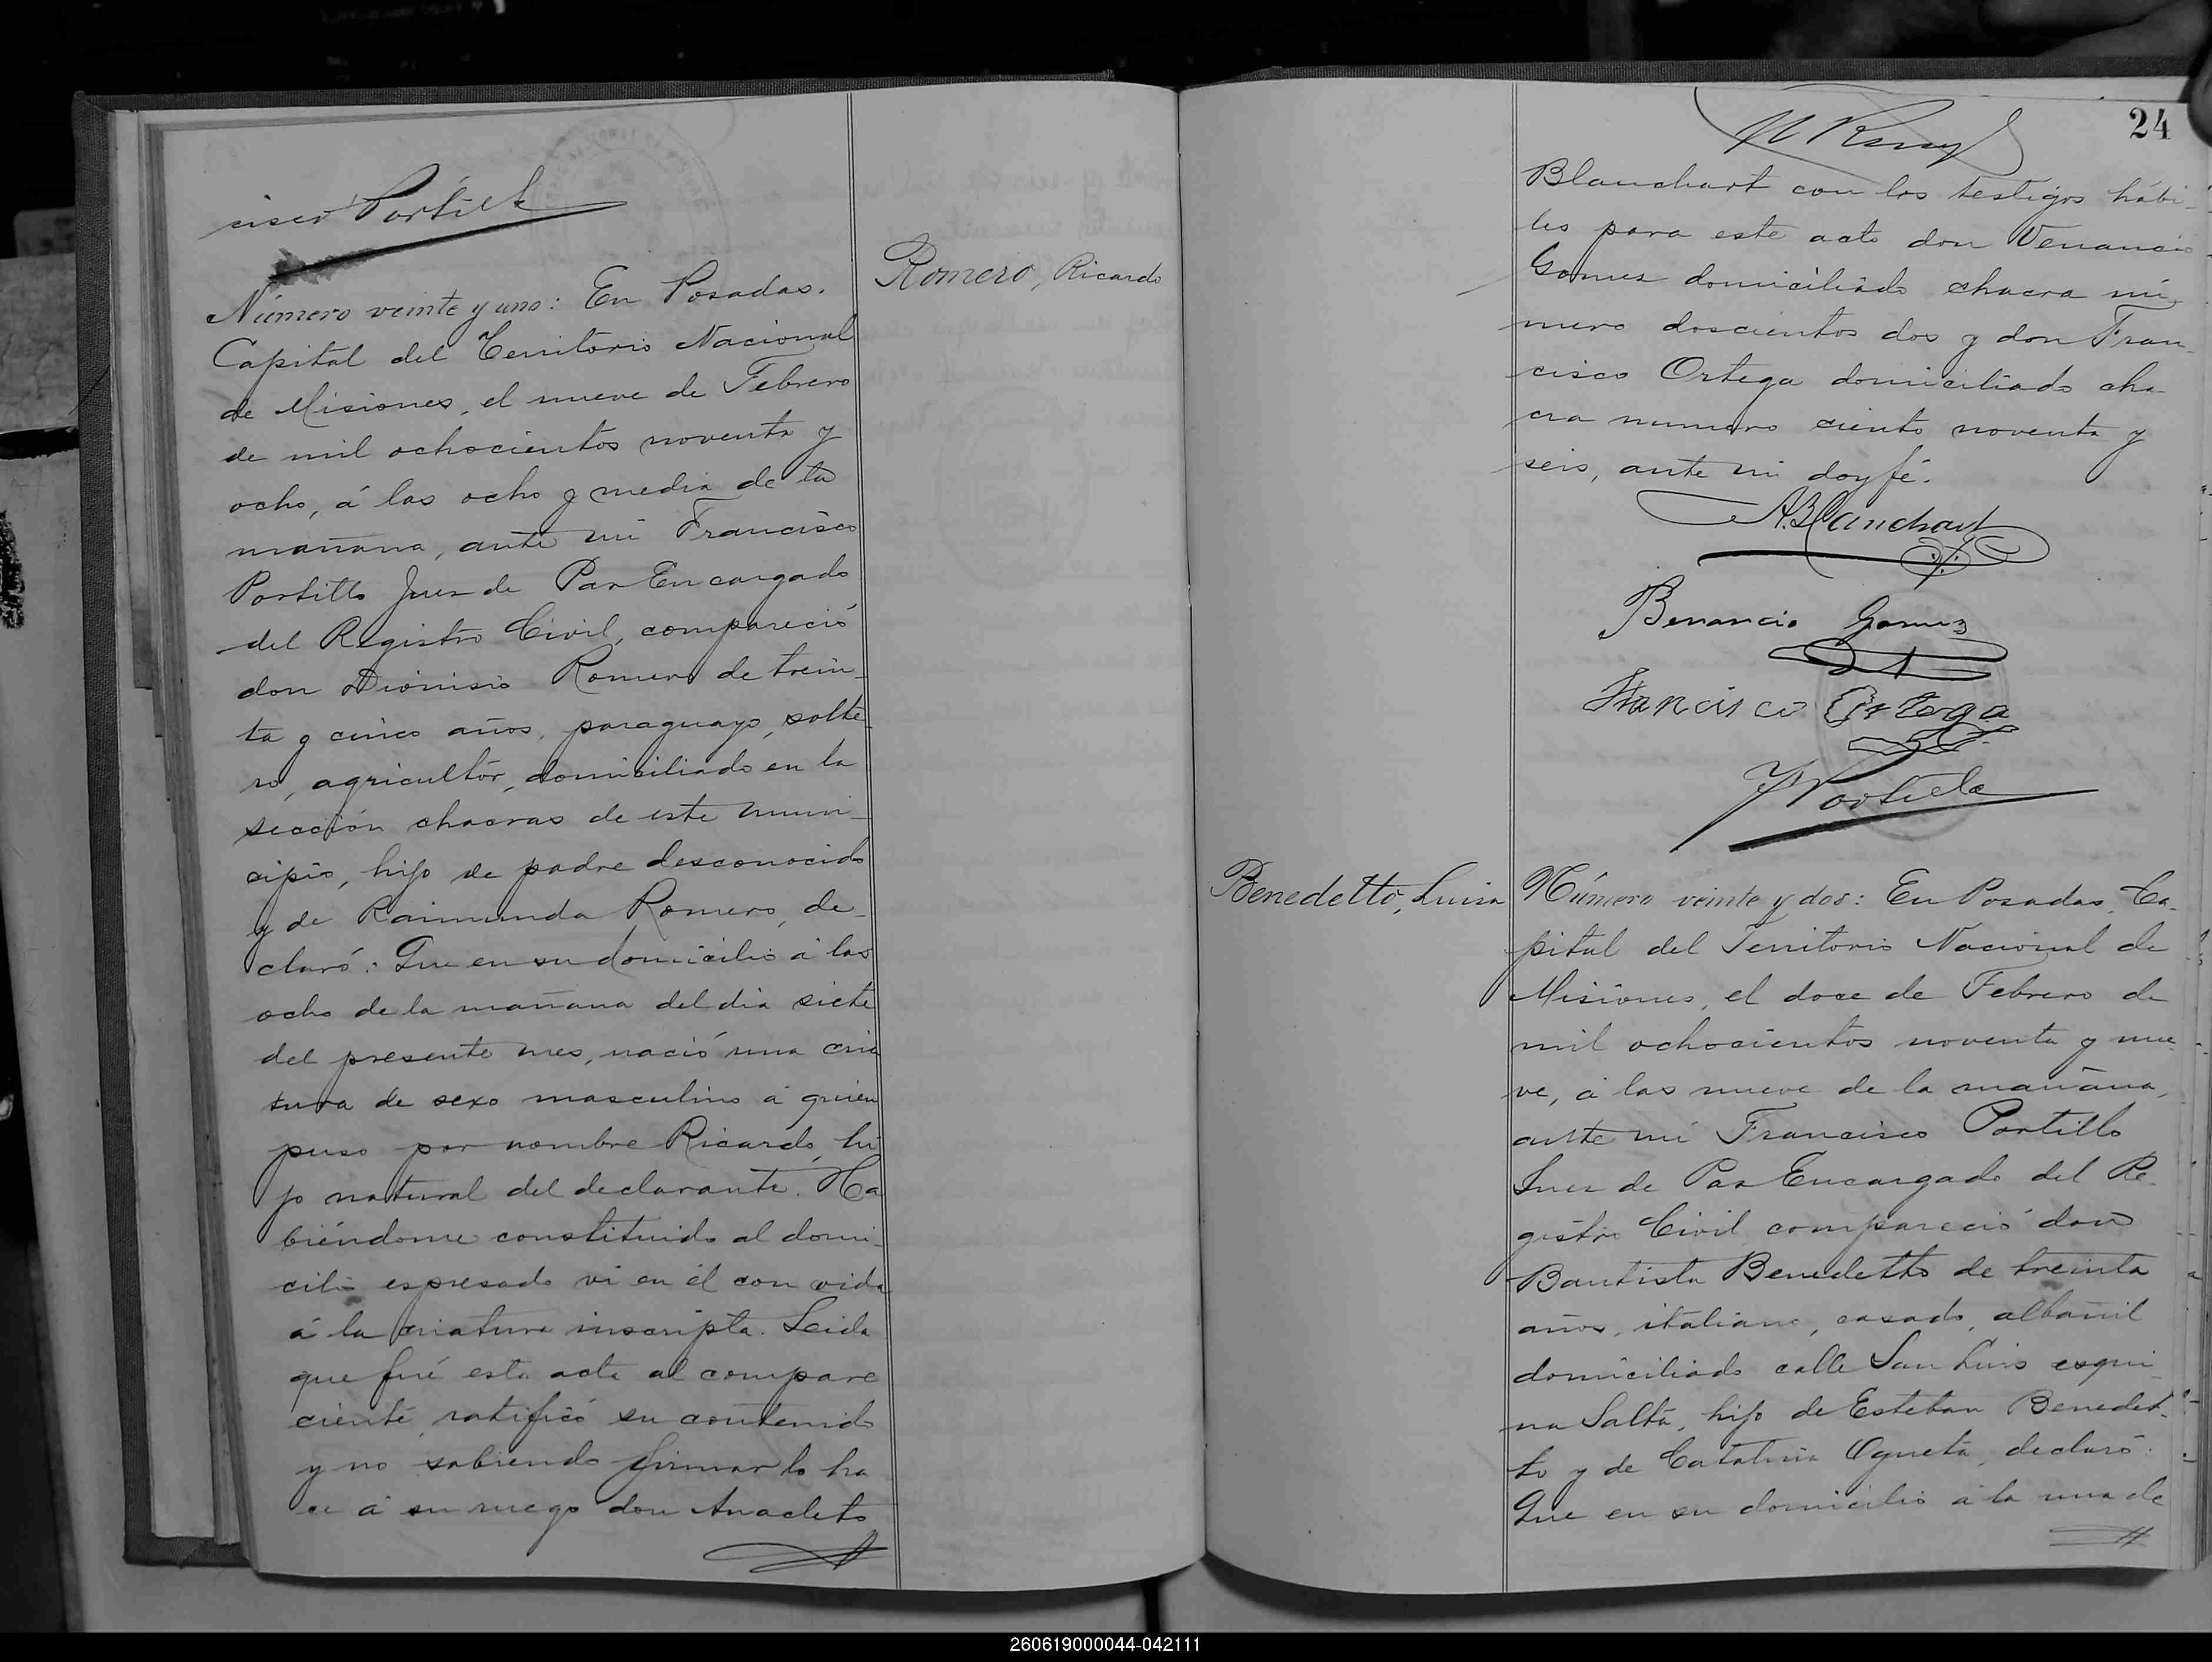 cisco Portillo
Romero, Ricardo
Número veinte y uno: En Posadas.
Capital del Territorio Nacional
de Misiones, el nueve de Febrero
de mil ochocientos noventa y
ocho, á las ocho y media de la
mañana, ante mi Francisco
Portillo Juez de Paz Encargado
del Registro Civil, compareció
don Dionisio Romero de trein-
ta y cinco años, paraguayo, solte-
ro, agricultor, domiciliado en la
sección chacras de este muni-
cipio, hijo de padre desconocido
y de Raimunda Romero, de-
claró: Que en su domicilio á las
ocho de la mañana del dia siete
del presente mes, nació una cria
tura de sexo masculino á quien
puso por nombre Ricardo, hi
jo natural del declarante. Ha
biéndome constituido al domi-
cilio espresado vi en él con vida
á la criatura inscripta. Leida
que fué esta acta al compare
ciente, ratificó su contenido
y no sabiendo firmar lo ha
ce á su ruego don Anacleto
24
Blanchart con los testigos hábi-
les para este acto don Venancio
Gomez domiciliado chacra nú-
mero doscientos dos y don Fran-
cisco Ortega domiciliado cha-
cra numero ciento noventa y
seis, ante mi doy fé.
A. Blanchart
Benancio Gomez
Francisco Ortega
F Portillo
Benedetto, Luisa
Número veinte y dos: En Posadas, Ca-
pital del Territorio Nacional de
Misiones, el doce de Febrero de
mil ochocientos noventa y nue-
ve, á las nueve de la mañana,
ante mi Francisco Portillo
Juez de Paz Encargado del Re-
gistro Civil compareció don
Bautista Benedetto de treinta
años, italiano, casado, albañil
domiciliado calle San Luis esqui-
na Salta, hijo de Esteban Benedet-
to y de Catalina Ogneta, declaró:
Que en su domicilio á la una de
260619000044-042111